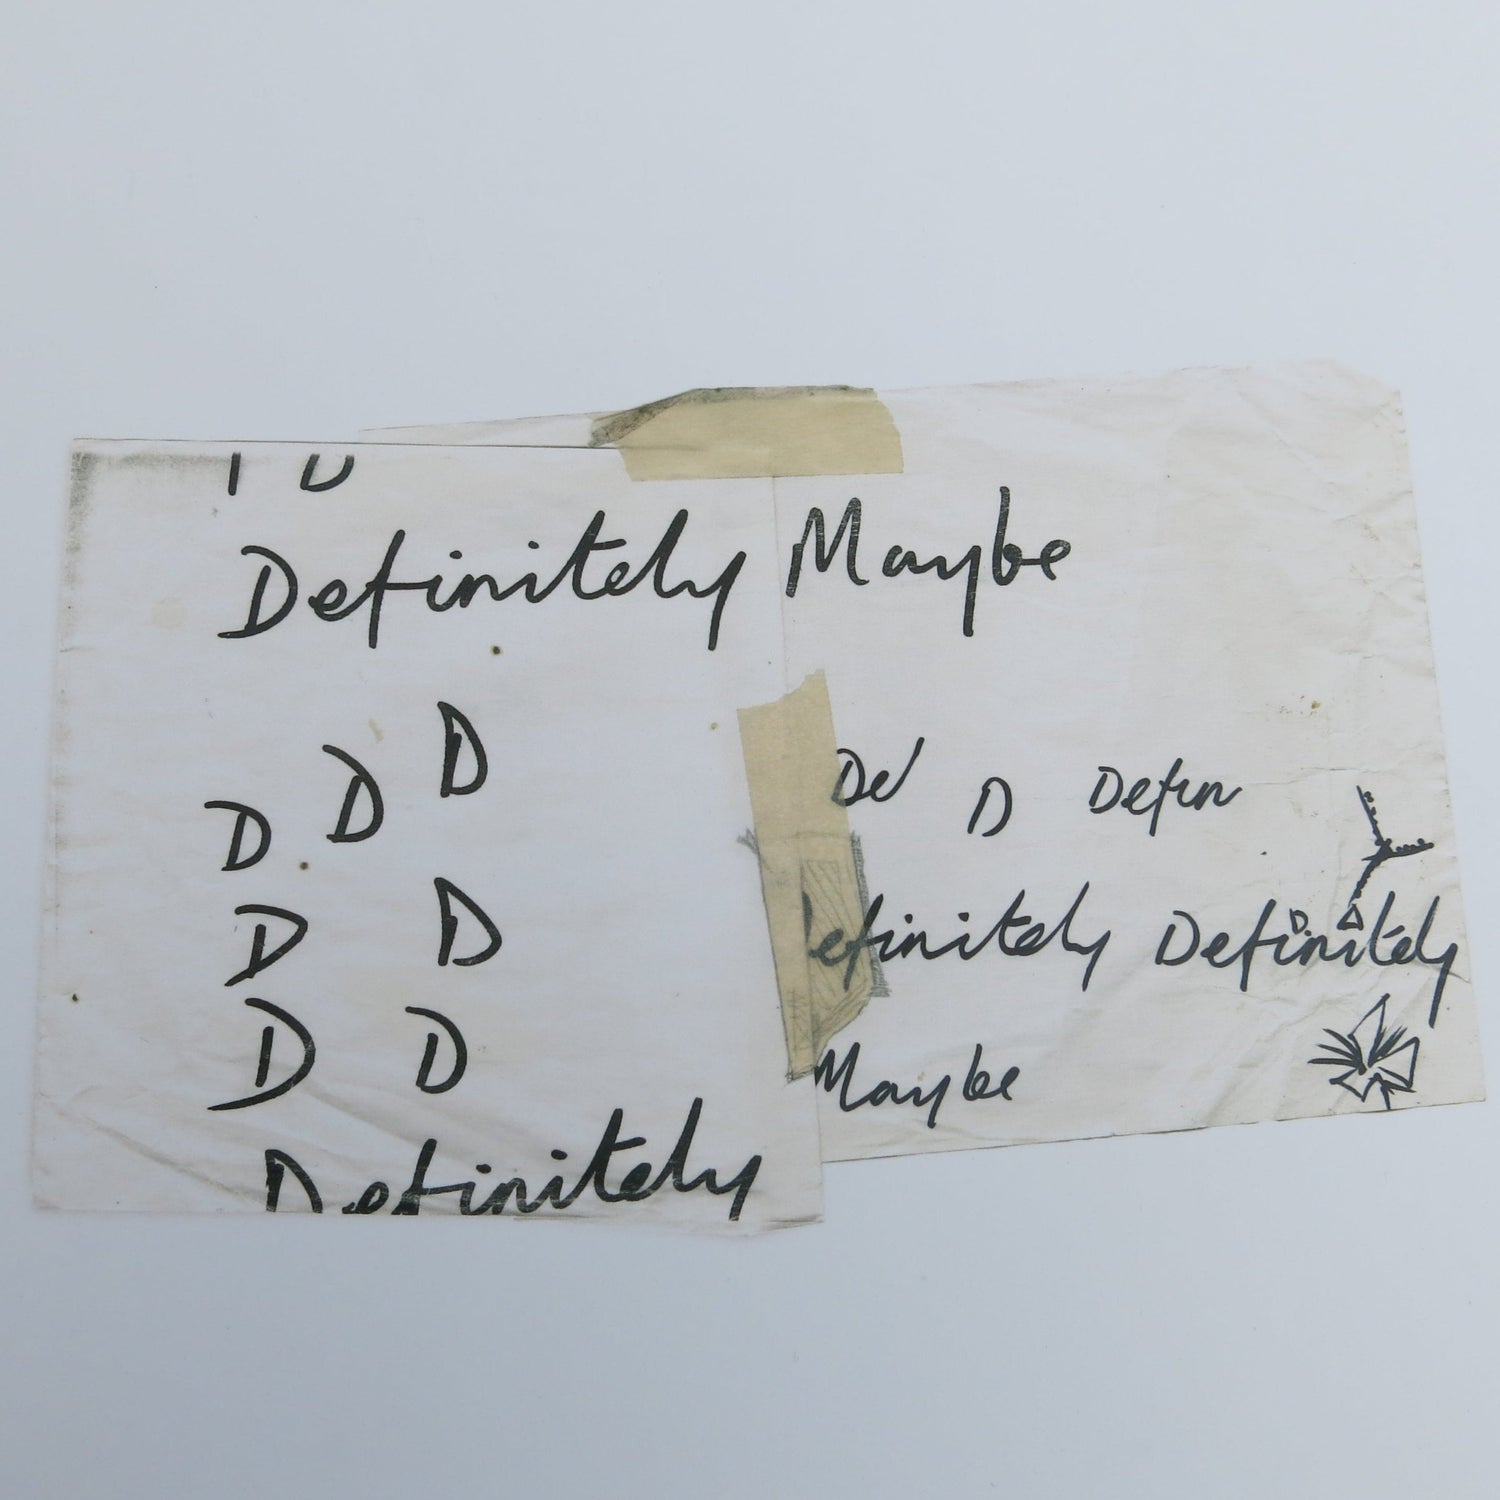 D
Definitely Maybe
D D D
De D Defin
D D
efinitely Definitely
D D
D D
Maybe
Definitely